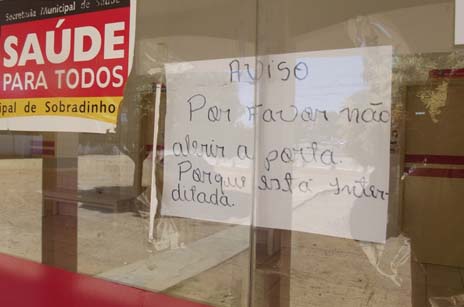 Secretaria Municipal de Saúde
SAÚDE
PARA TODOS
ipal de Sobradinho
AVISO
Por Favor não
abrir a porta.
Porque está inter-
ditada.